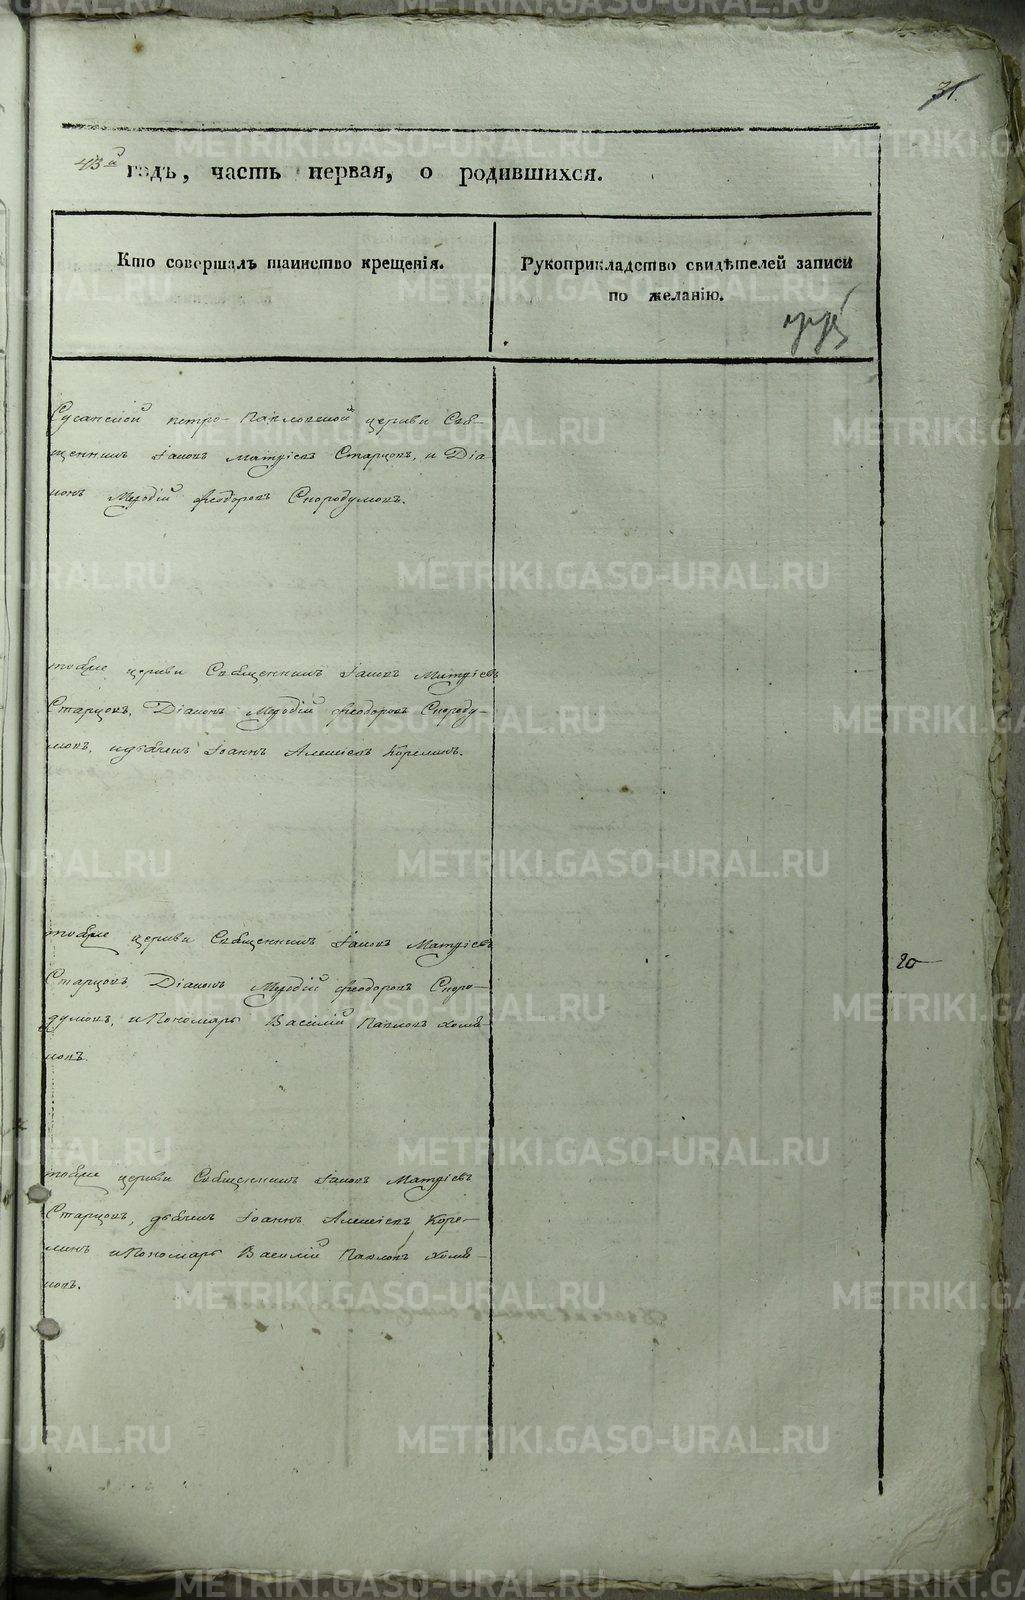 31.
43й годъ, часть первая, о родившихся.
Кто совершалъ таинство крещенія.
Рукоприкладство свидѣтелей записи
по желанію.
Сусанской Петро-Павловской церкви Свя-
щенникъ Іаковъ Матѳіевъ Старцовъ, и Діа
конъ Меѳодій Ѳеодоровъ Скородумовъ.
тояже церкви Священникъ Іаковъ Матѳіевъ
Старцовъ, Діаконъ Меѳодій Ѳеодоровъ Скороду-
мовъ, и дьячекъ Іоаннъ Алексіевъ Корелинъ.
тояже церкви Священникъ Іаковъ Матѳіевъ
Старцовъ, Діаконъ Меѳодій Ѳеодоровъ Скоро-
думовъ, и Пономарь Василій Павловъ Хомя-
ковъ.
20
тояже церкви Священникъ Іаковъ Матѳіевъ
Старцовъ, дьячекъ Іоаннъ Алексіевъ Коре-
линъ и Пономарь Василій Павловъ Хомя-
ковъ.
METRIKI.GASO-URAL.RU